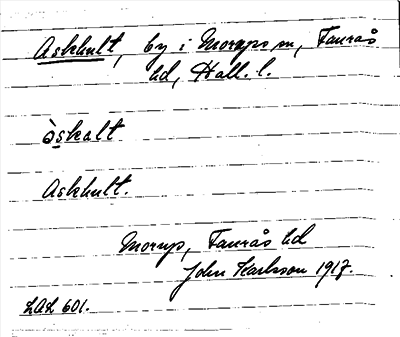 Askhult, by i Morups sn, Faurås
hd, Hall. l.
òskalt
Askhult.
Morup, Faurås hd
John Karlsson 1917.
LAL 601.